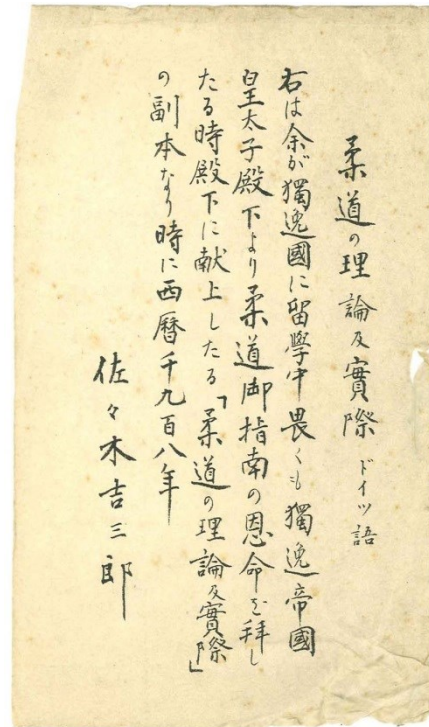 柔道の理論及實際 ドイツ語
右は余が獨逸國に留學中畏くも獨逸帝國
皇太子殿下より柔道御指南の恩命を拝し
たる時殿下に献上したる「柔道の理論及實際」
の副本なり時に西暦千九百八年
佐々木吉三郎